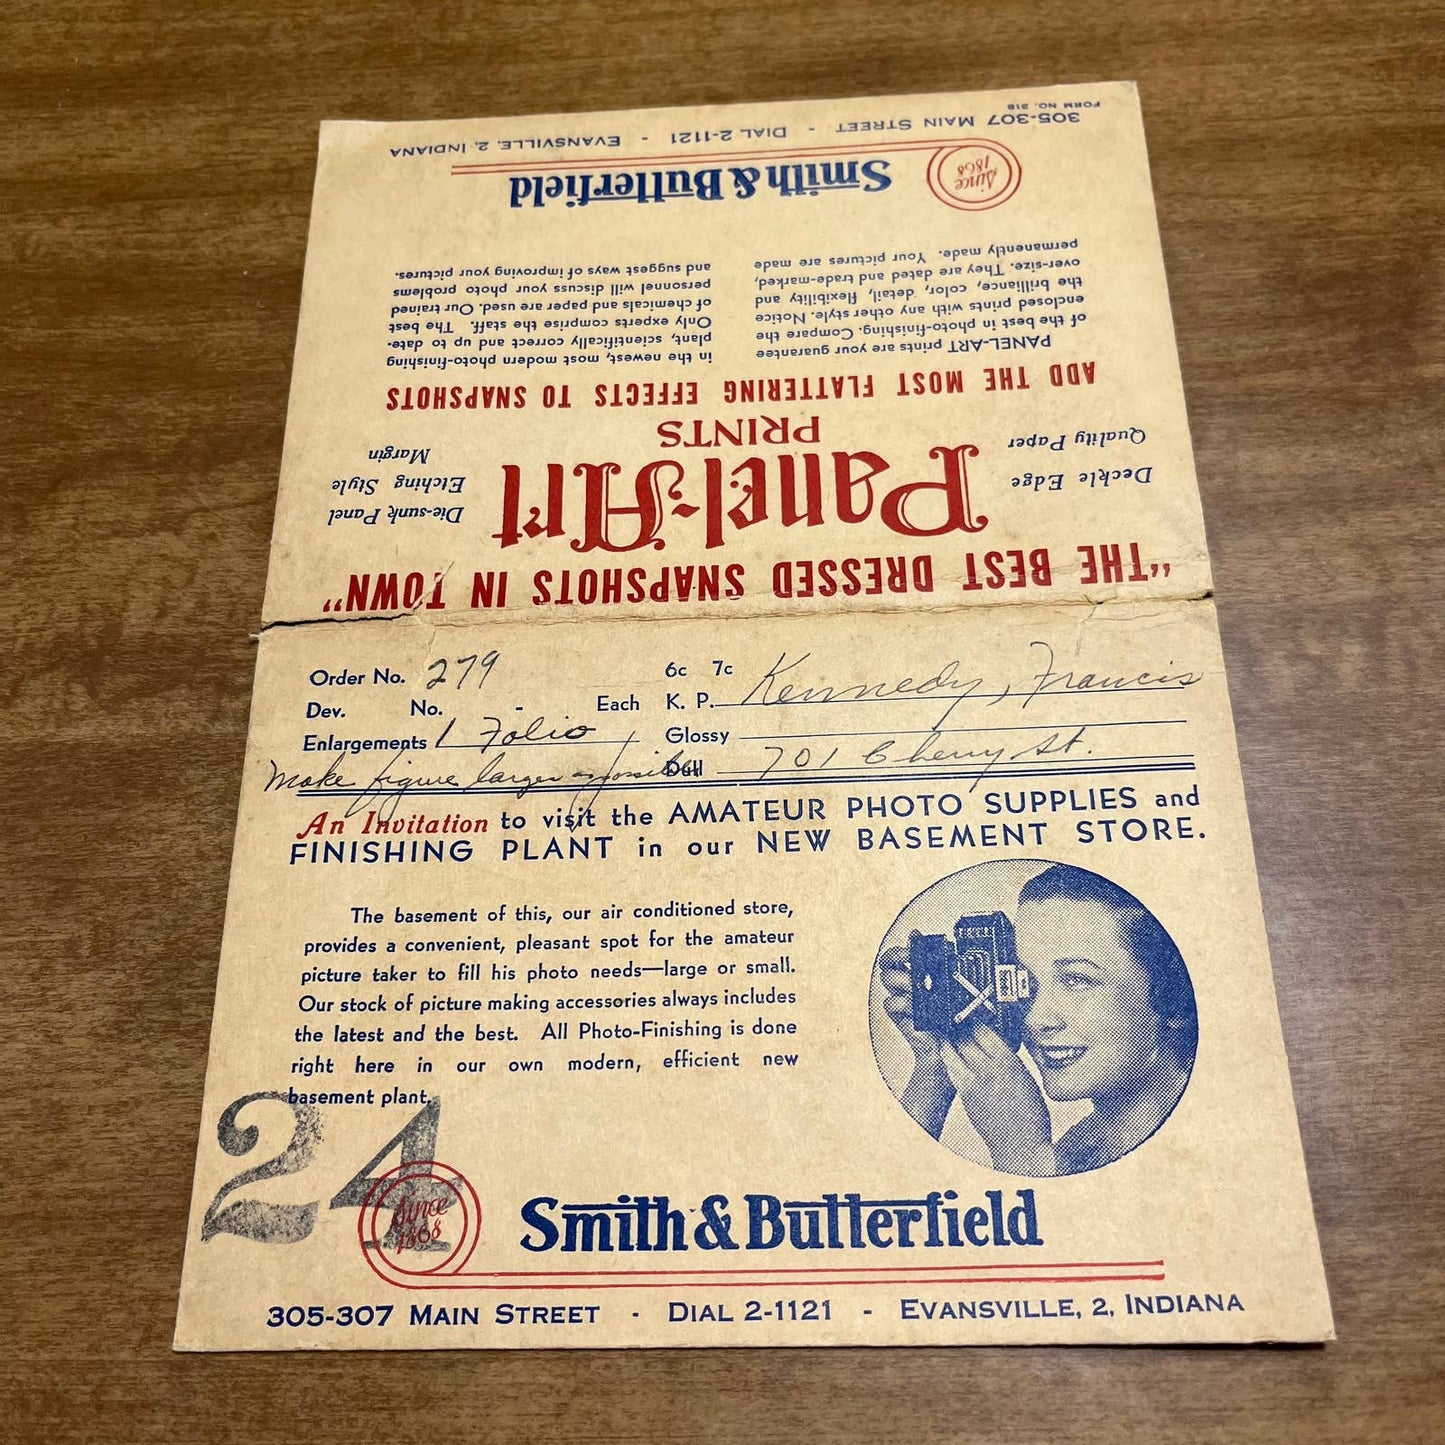 FORM NO. 21B
305-307 MAIN STREET - DIAL 2-1121 - EVANSVILLE, 2, INDIANA
Since 1868
Smith & Butterfield
PANEL-ART prints are your guarantee
of the best in photo-finishing. Compare the
enclosed prints with any other style. Notice
the brilliance, color, detail, flexibility and
over-size. They are dated and trade-marked,
permanently made. Your pictures are made
in the newest, most modern photo-finishing
plant, scientifically correct and up to date.
Only experts comprise the staff. The best
of chemicals and paper are used. Our trained
personnel will discuss your photo problems
and suggest ways of improving your pictures.
ADD THE MOST FLATTERING EFFECTS TO SNAPSHOTS
PRINTS
Panel-Art
Quality Paper
Deckle Edge
Margin
Etching Style
Die-sunk Panel
"THE BEST DRESSED SNAPSHOTS IN TOWN"
Order No. 279 6c 7c Kennedy, Francis
Dev. No. - Each K. P.
Enlargements 1 Folio, Glossy
Make figure larger as possible Dull 701 Cherry St.
An Invitation to visit the AMATEUR PHOTO SUPPLIES and
FINISHING PLANT in our NEW BASEMENT STORE.
The basement of this, our air conditioned store,
provides a convenient, pleasant spot for the amateur
picture taker to fill his photo needs—large or small.
Our stock of picture making accessories always includes
the latest and the best. All Photo-Finishing is done
right here in our own modern, efficient new
basement plant.
24
Since 1868
Smith & Butterfield
305-307 MAIN STREET - DIAL 2-1121 - EVANSVILLE, 2, INDIANA